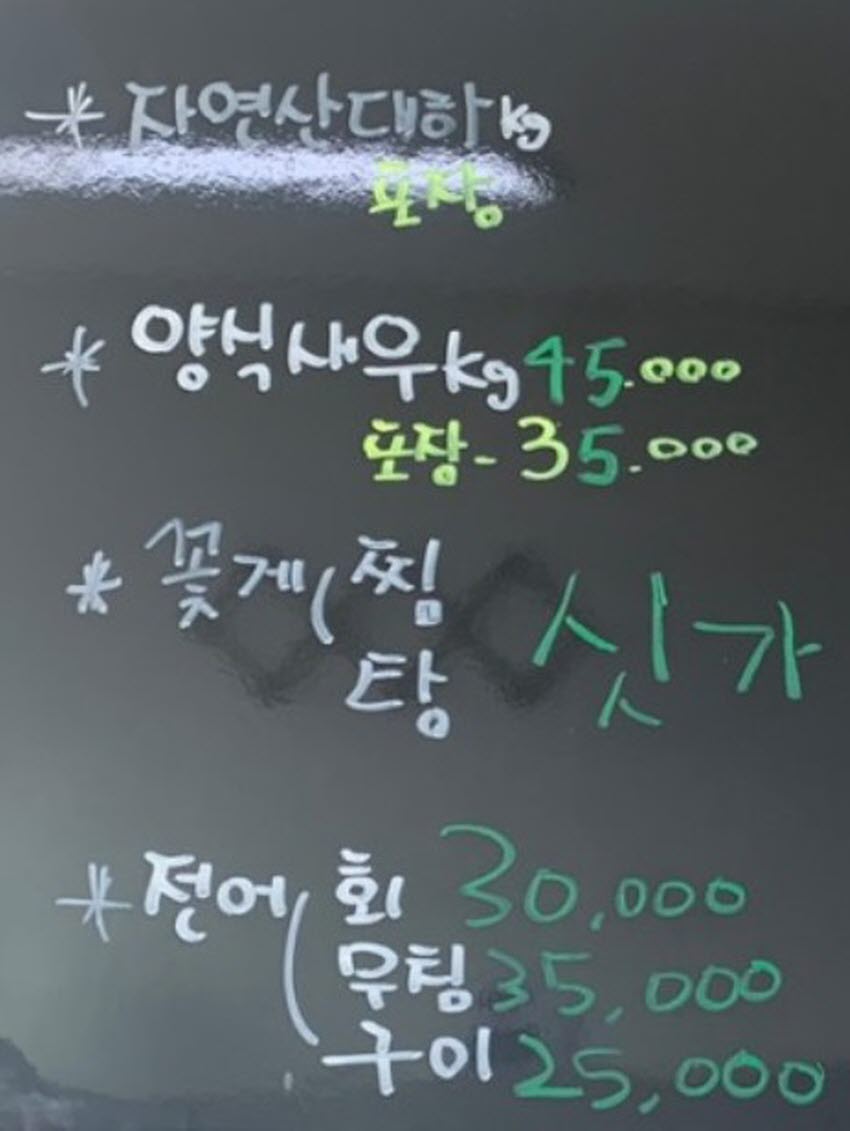 * 자연산대하kg
포장
* 양식새우kg 45.000
포장-35.000
* 꽃게( 찜 싯가
탕
* 전어( 회 30,000
무침 35,000
구이 25,000